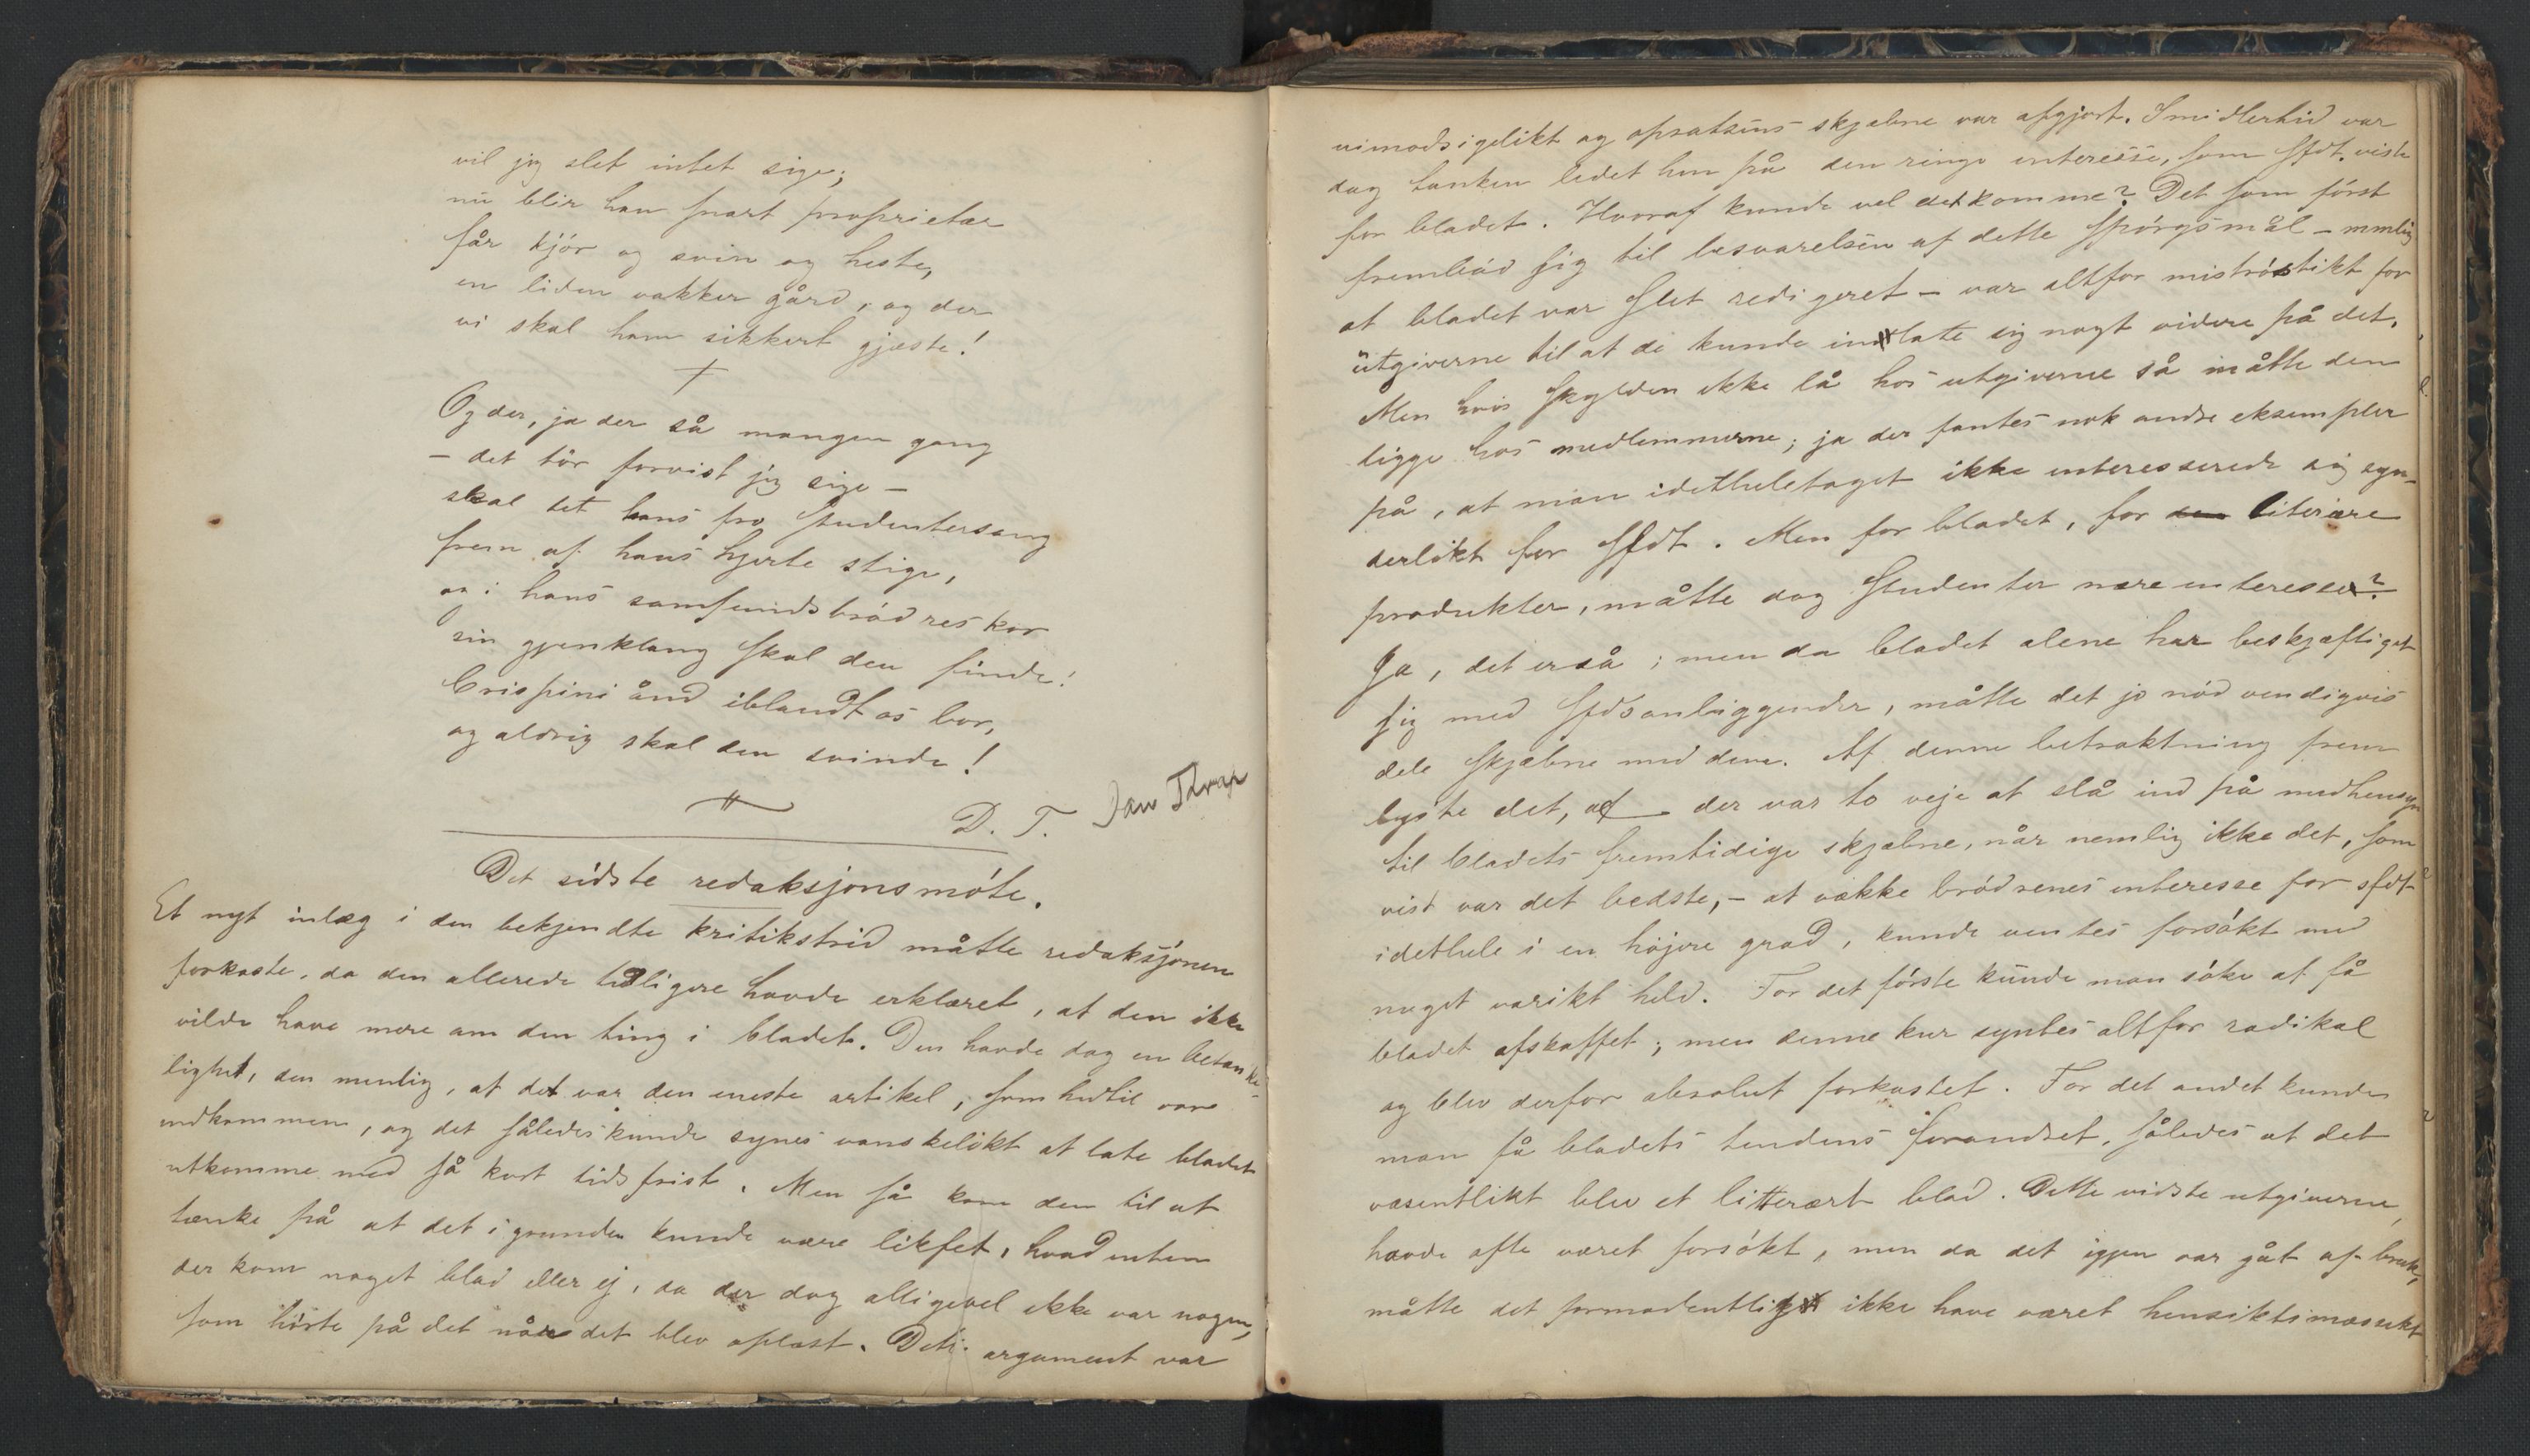 vil jeg slet intet sige;
nu blir han snart proprietær
får kjør og svin og heste,
en liden vakker gård; og der
vi skal ham sikkert gjæste!
Og der, ja der så mangen gang
– det tör forvist jeg sige –
skal tet hans fro Studentersang
frem af hans hjerte stige,
og i hans samfundsbrødres kor
sin gjenklang skal den finde!
Crispini ånd iblandt os bor,
og aldrig skal den svinde!
D. T. Jan Thrap
Det sidste redaksjonsmöte.
Et nyt inlæg i den bekjendte kritikstrid måtte redaksjonen
forkaste, da den allerede tidligere havde erklæret, at den ikke
vilde have mere om den ting i bladet. Den havde dog en betænke-
lighet, den nemlig, at det var den eneste artikel, som hidtil var
indkommen, og det således kunde synes vanskelikt at late bladet
utkomme med så kort tidsfrist. Men så kom den til at
tænke på at det i grunden kunde være likfet, hvad enten
der kom noget blad eller ej, da der dog alligevel ikke var nogen,
som hörte på det når det blev oplæst. Dette argument var
uimodsigelikt og opsatsens skjæbne var afgjort. Imidlertid var
dog tanken ledet hen på den ringe interesse, som Sfdt. viste
for bladet. Hvoraf kunde vel det komme? Det som först
frembød sig til besvarelsen af dette Spörgsmål – nemlig
at bladet var slet redigeret – var altfor miströstikt for
utgiverne til at de kunde inlate sig nogt videre på det.
Men hvis Skylden ikke lå hos utgiverne så måtte den
ligge hos medlemmerne; ja der fantes nok andre eksempler
på, at man idethelet­aget ikke interesserede sig syn-
derlikt for Sfdt. Men for bladet, for den literære
produkter, måtte dog Studenter nære interesse?
Ja, det er så; men da bladet alene har beskjæftiget
sig med Sfdsanliggender, måtte det jo nödvendigvis
dele Skjæbne med dem. Af denne betraktning frem
lyste det, at der var to veje at slå ind på med hensyn
til bladets fremtidige skjæbne, når nemlig ikke det, som
vist var det bedste, – at vække brödrenes interesse for sfdt
idethele i en höjere grad, kunde ventes forsökt med
noget varikt held. For det förste kunde man söke at få
bladet afskaffet; men denne kur syntes altfor radikal
og blev derfor absolut forkastet. For det andet kunde
man få bladets tendens forandret, således at det
væsentlikt blev et litterært blad. Dette vidste utgiverne,
havde ofte været forsökt, men da det igjen var gåt af bruk,
måtte det formodentlig ikke have været hensiktsmæssikt